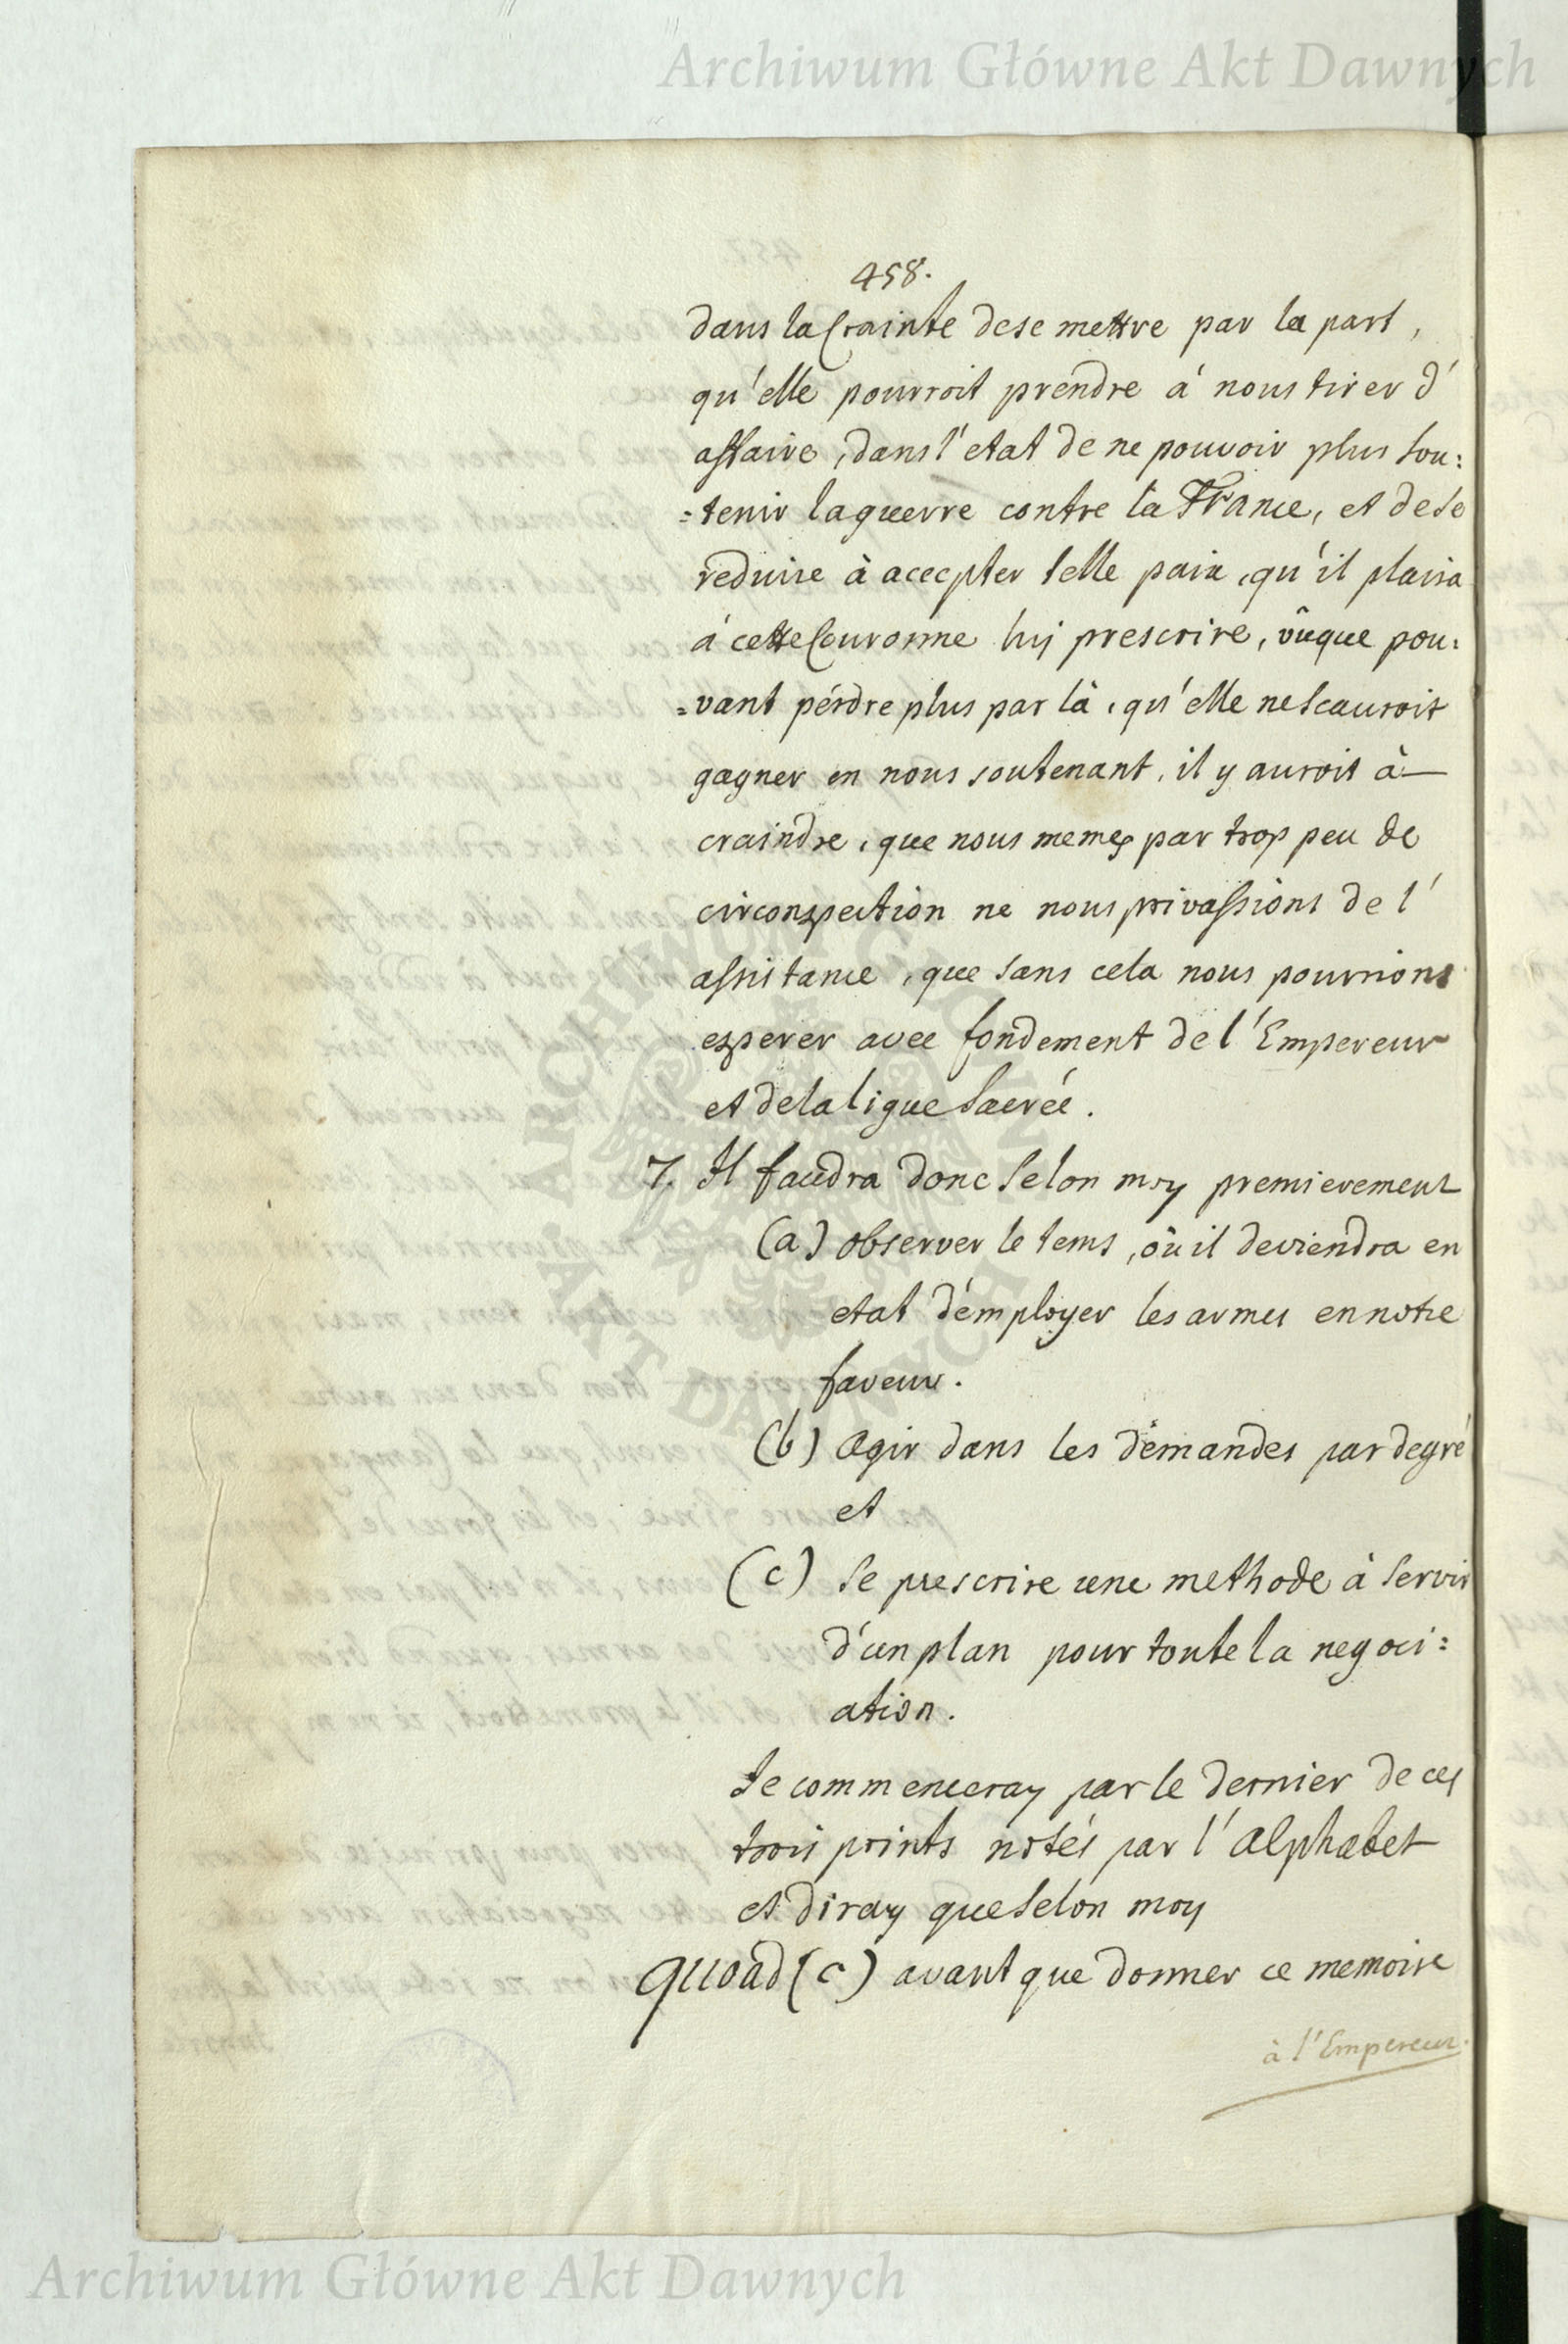 Archiwum Główne Akt Dawnych
458.
dans la Crainte de se mettre par la part,
qu'elle pourroit prendre à nous tirer d'
affaire, dans l'etat de ne pouvoir plus sou:
=tenir la guerre contre la France, et de se
reduire à acecpter telle paix, qu'il plaira
á cette Couronne luy prescrire, vûque pou:
=vant pérdre plus par là, qu'elle ne scauroit
gagner en nous soutenant, il y auroit à
craindre, que nous memes par trop peu de
circonspection ne nous privassions de l'
assistance, que sans cela nous pourrions
esperer avec fondement de l'Empereur
et de la ligue Sacrée.
7. Il faudra donc selon moy premierement
(a) observer le tems, où il deviendra en
etat d'employer les armes en notre
faveur.
(b) agir dans les demandes par degré
et
(c) se prescrire une methode à servir
d'un plan pour toute la negoci:
ation.
Je commenceray par le dernier de ces
trois points notés par l'alphabet
et diray que selon moy
quoad (c) avant que donner ce memoire
à l'Empereur.
ARCHIWUM GŁÓWNE AKT DAWNYCH
Archiwum Główne Akt Dawnych